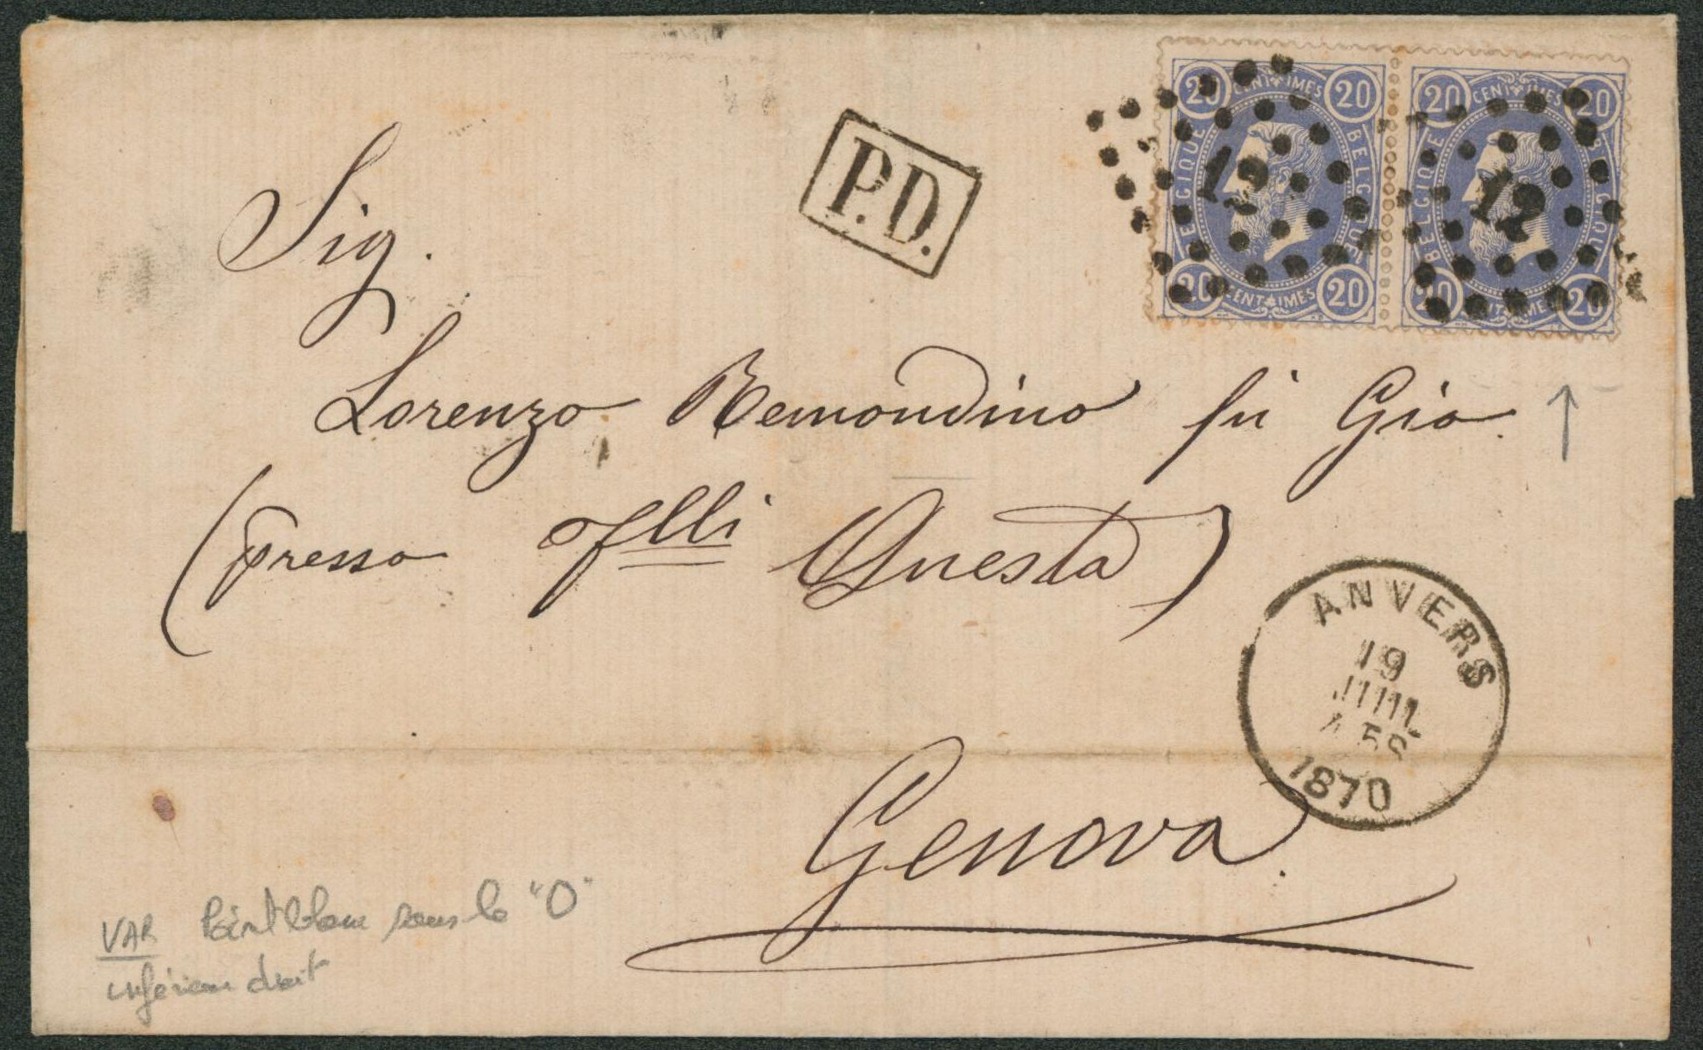 P.D.
20 CENTIMES 20
BELGIQUE BELGIQUE
20 CENTIMES 20
20 CENTIMES 20
BELGIQUE BELGIQUE
20 CENTIMES 20
12
12
Sig.
Lorenzo Remondino fu Gio.
(presso Flli Questa)
Genova.
ANVERS
19
JUIL
1870
VAR Point blanc sous le "0"
inférieur droit